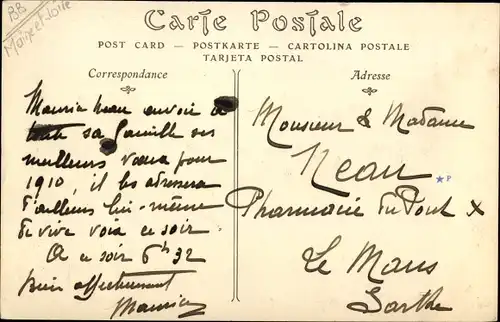 BB
Maine et Loire
Carte Postale
POST CARD — POSTKARTE — CARTOLINA POSTALE
TARJETA POSTAL
Correspondance
Maurice Neau envoie à
toute sa famille ses
meilleurs vœux pour
1910, il les adressera
d'ailleurs lui-même
de vive voix ce soir
A ce soir 6h32
Bien affectueusement
Maurice
Adresse
Monsieur & Madame
Neau
Pharmacie du Pont
Le Mans
Sarthe